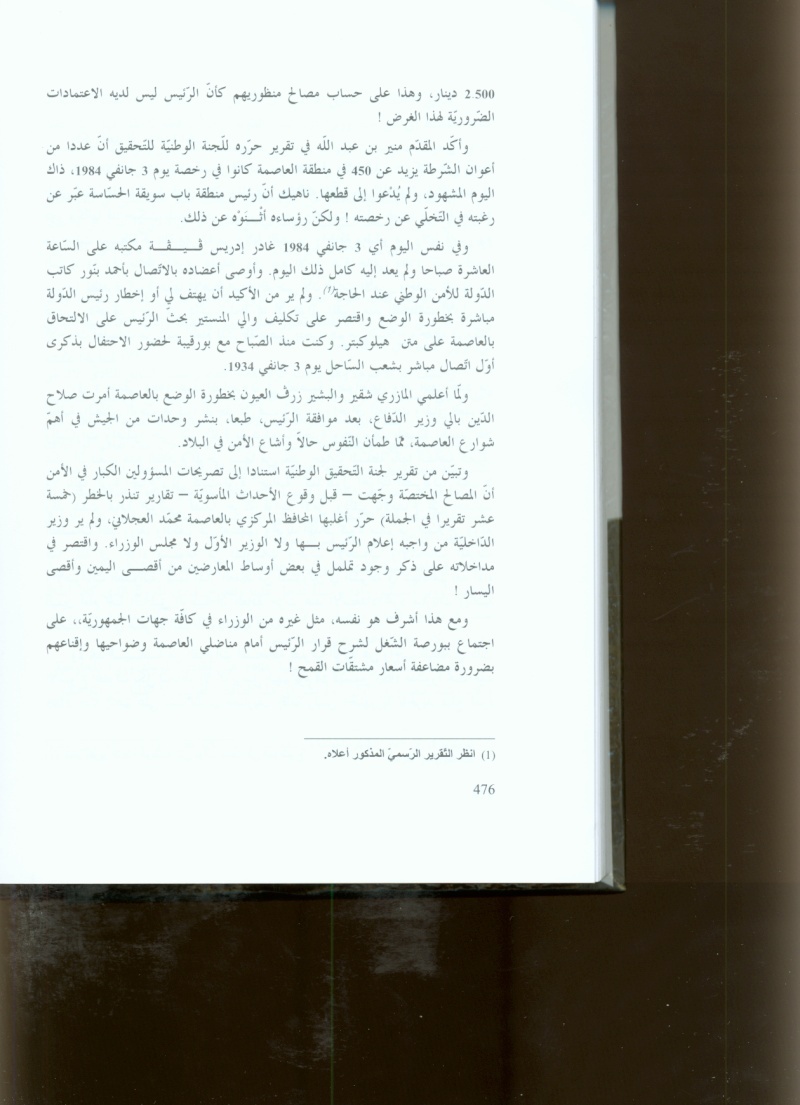 2.500 دينار، وهذا على حساب مصالح منظوريهم كأنّ الرّئيس ليس لديه الاعتمادات
الضّروريّة لهذا الغرض !
وأكّد المقدّم منير بن عبد اللّه في تقرير حرّره للّجنة الوطنيّة للتّحقيق أنّ عددا من
أعوان الشّرطة يزيد عن 450 في منطقة العاصمة كانوا في رخصة يوم 3 جانفي 1984، ذاك
اليوم المشهود، ولم يُدْعوا إلى قطعها. ناهيك أنّ رئيس منطقة باب سويقة الحسّاسة عبّر عن
رغبته في التّخلّي عن رخصته ! ولكنّ رؤساءه أثْـــنَوْه عن ذلك.
وفي نفس اليوم أي 3 جانفي 1984 غادر إدريس ڤـيـڤـــة مكتبه على السّاعة
العاشرة صباحا ولم يعد إليه كامل ذلك اليوم. وأوصى أعضاده بالاتّصال بأحمد بنّور كاتب
الدّولة للأمن الوطني عند الحاجة(1). ولم ير من الأكيد أن يهتف لي أو إخطار رئيس الدّولة
مباشرة بخطورة الوضع واقتصر على تكليف والي المنستير بحثّ الرّئيس على الالتحاق
بالعاصمة على متن هيلوكبتر. وكنت منذ الصّباح مع بورقيبة لحضور الاحتفال بذكرى
أوّل اتّصال مباشر بشعب السّاحل يوم 3 جانفي 1934.
ولمّا أعلمي المازري شقير والبشير زرڤ العيون بخطورة الوضع بالعاصمة أمرت صلاح
الدّين بالي وزير الدّفاع، بعد موافقة الرّئيس، طبعا، بنشر وحدات من الجيش في أهمّ
شوارع العاصمة، ممّا طمأن النّفوس حالاً وأشاع الأمن في البلاد.
وتبيّن من تقرير لجنة التّحقيق الوطنيّة استنادا إلى تصريحات المسؤولين الكبار في الأمن
أنّ المصالح المختصّة وجّهت – قبل وقوع الأحداث المأسويّة – تقارير تنذر بالخطر (خمسة
عشر تقريرا في الجملة) حرّر أغلبها المحافظ المركزي بالعاصمة محمّد العجلاني، ولم ير وزير
الدّاخليّة من واجبه إعلام الرّئيس بـــها ولا الوزير الأوّل ولا مجلس الوزراء. واقتصر في
مداخلاته على ذكر وجود تململ في بعض أوساط المعارضين من أقصـــى اليمين وأقصى
اليسار !
ومع هذا أشرف هو نفسه، مثل غيره من الوزراء في كافّة جهات الجمهوريّة،، على
اجتماع ببورصة الشّغل لشرح قرار الرّئيس أمام مناضلي العاصمة وضواحيها وإقناعهم
بضرورة مضاعفة أسعار مشتقّات القمح !
(1) انظر التّقرير الرّسميّ المذكور أعلاه.
476